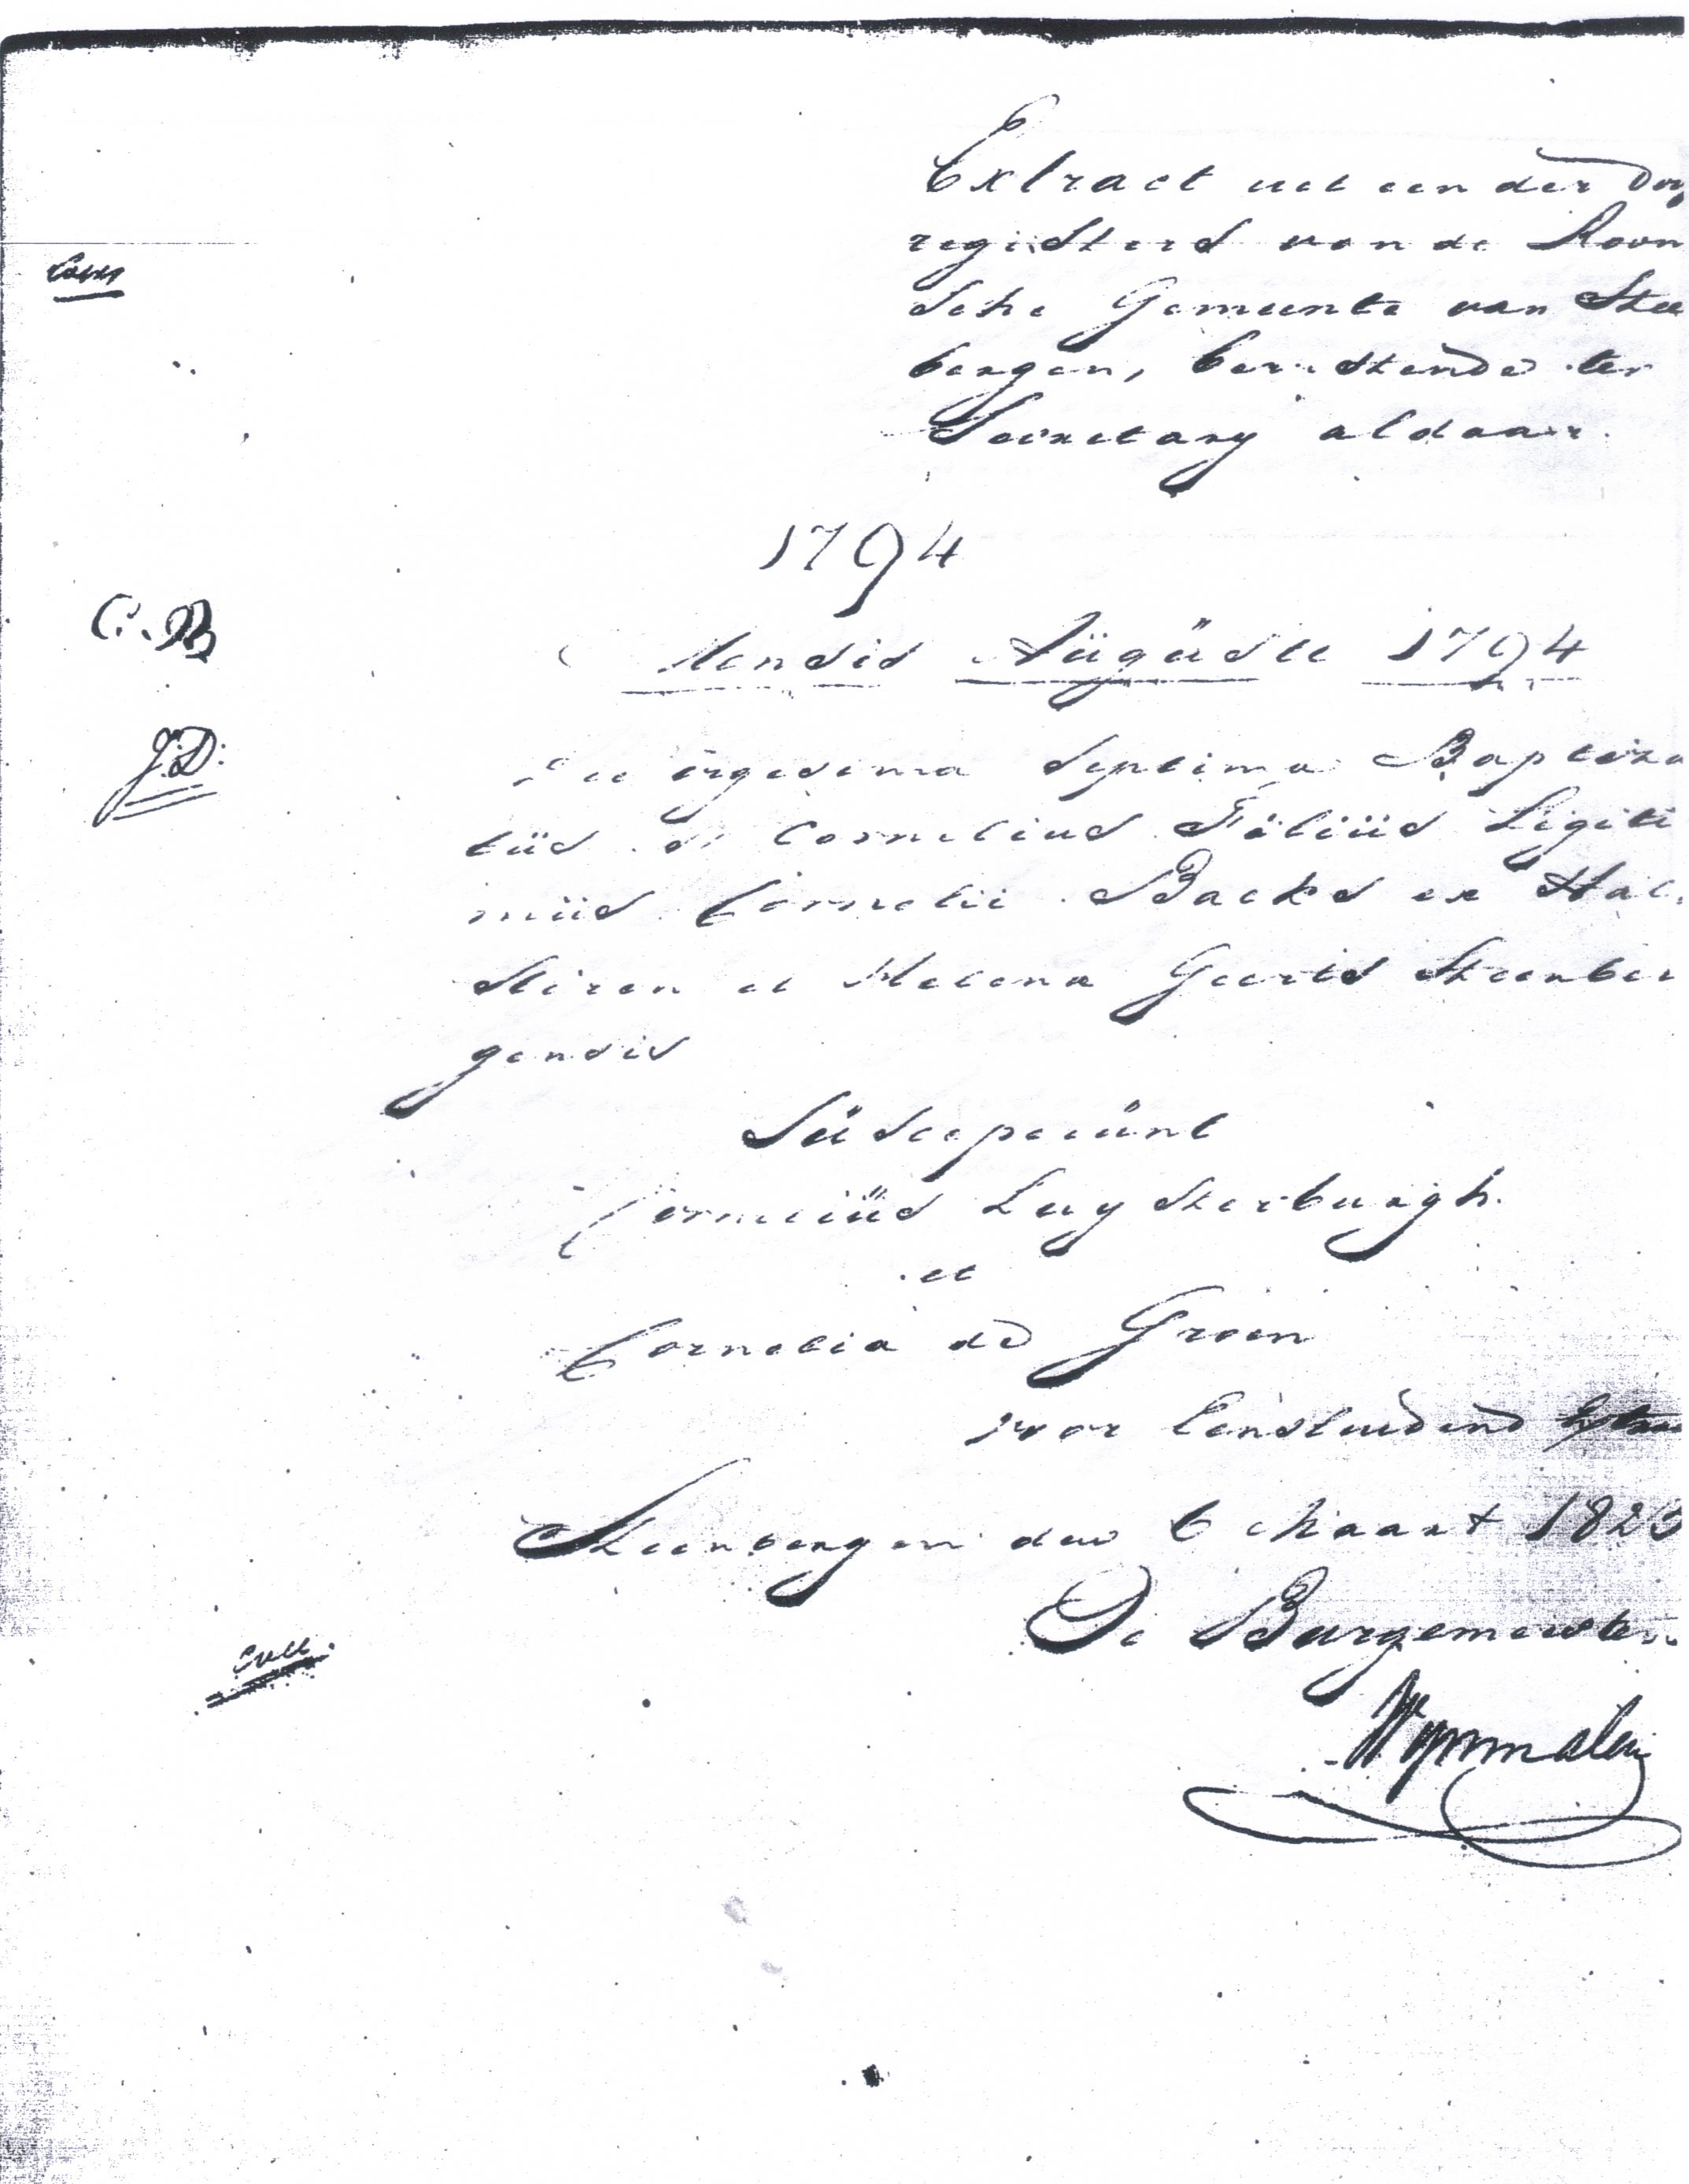 Extract uit een der Doop
registers van de Room
sche Gemeente van Stee
bergen, berustende ter
Secretary aldaar.
1794
C. B
Mensis Augusti 1794
J: D:
vigesima septima Baptiza
tus Cornelius Filius Legiti
mus Cornelii Backs ex Hal.
steren et Helena Geerts Steenber
gensis
Susceperunt
Cornelius Luysterburgh.
et
Cornelia de Groen
voor Eensluidend
Steenbergen den 6 Maart 182
De Burgemeester